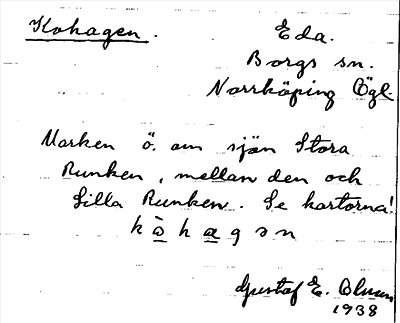 Kohagen.
Eda.
Borgs sn.
Norrköping Ögl.
Marken ö. om sjön Stora
Runken, mellan den och
Lilla Runken. Se kartorna!
kòhagən
Gustaf E. Olsson
1938